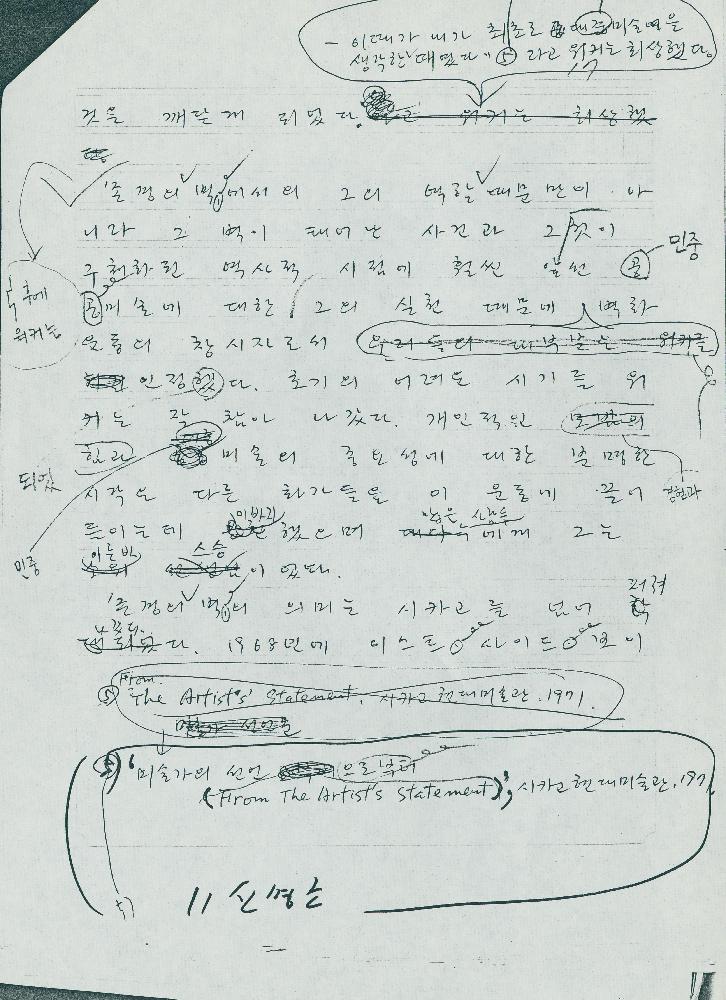 - 이때가 내가 최초로 대중미술예을
생각한 때였다" ⑤ 라고 워커는 회상했다.
것을 깨닫게 되었다. 워커는 회상했
'존경의 벽'에서의 그의 역할 때문만이 아
니라 그 벽이 태어난 사건과 그것이
구현화된 역사적 시점에 훨씬 앞선 공
민중
공께'술에 대한 그의 실천 때문에 벽화
후에
워커는
운동의 창시자로서 우리들의 대부분은 워커를
인정했다. 초기의 어려운 시기를 워
커는 잘 참아 나갔다. 개인적인
했고 미술의 중요성에 대한 분명한
되었
시각은 다른 화가들을 이 운동에 끌어
경험과
들이는데 이바지 했으며 많은 사람들에게 그는
민중
이른바 스승이었다.
'존경의 벽'의 의미는 시카고를 넘어 퍼져
나갔다. 1968년에 이스트 사이드 갱이
⑤ From The Artist's Statement, 시카고 현대미술관, 1971.
⑤ '미술가의 선언 으로부터
(From The Artist's Statement)', 시카고 현대미술관, 197
57
11 신영은